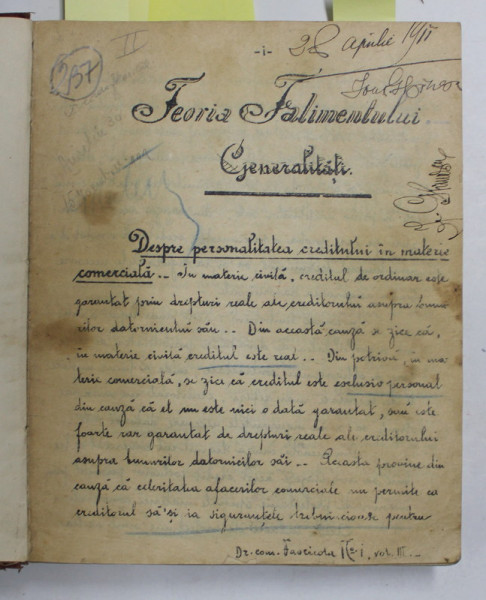 II
-1-
28 aprilie 1911
257
Teoria Falimentului
Generalităţi.
Despre personalitatea creditului în materie
comercială.. In materie civilă, creditul de ordinar este
garantat prin drepturi reale ale creditorului asupra bunu
rilor datornicului său.. Din această cauză se zice că,
in materie civilă creditul este real.. Din potrivă in ma
terii comercială, se zice că creditul este esclusiv personal
din cauză că el nu este nici o dată garantat, sau este
foarte rar garantat de drepturi reale ale creditorului
asupra bunurilor datornicilor săi.. Aceasta provine din
cauză că celeritatea afacerilor comerciale nu permite ca
creditorul să'şi ia siguranţele trebuincioase pentru
Dr. com. Fascicola vol. III.